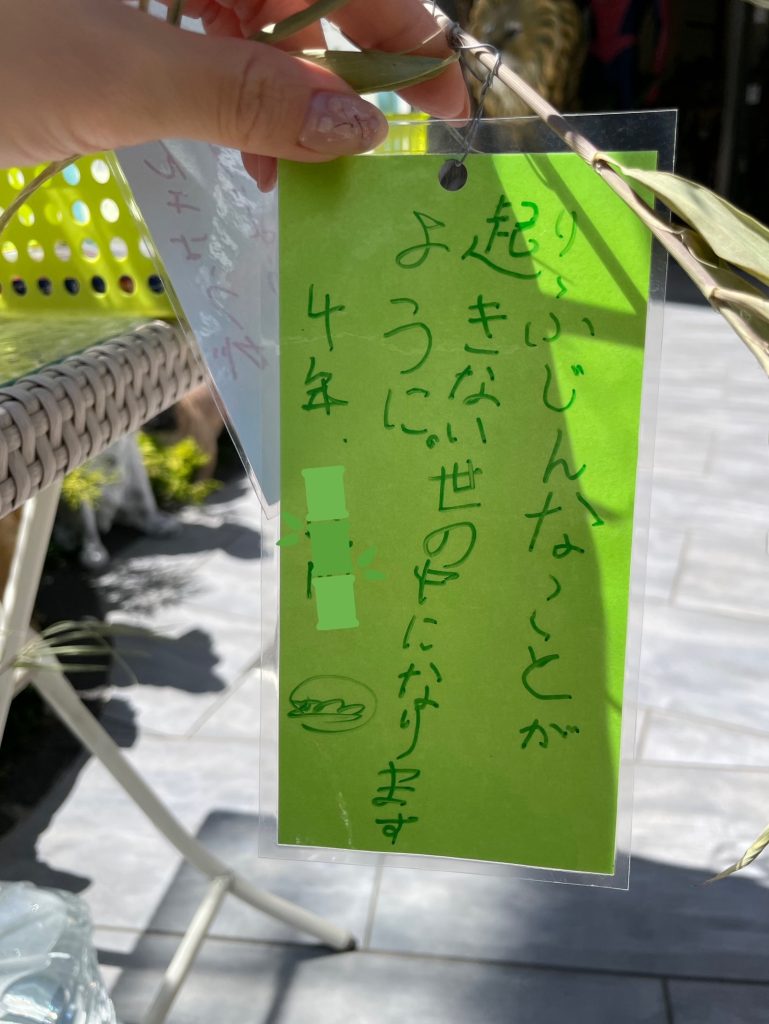 りふじんなことが
起きない世の中になります
ように。
4年.